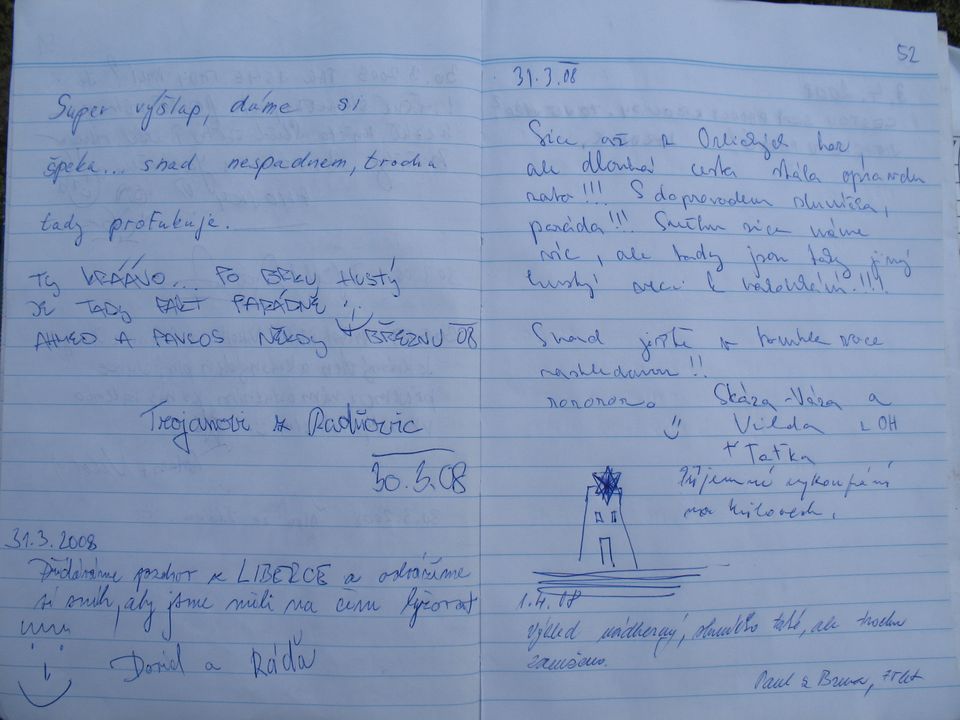 Super výšlap, dáme si
špeka... snad nespadnem, trochu
tady profukuje.
TY KRÁÁVO... PO BRKU HUSTÝ
JE TADY FAKT PARÁDNĚ
AHMED A PANCOS NĚKDY BŘEZNU 08
Trojanovi z Radňovic
30.3.08
31.3.2008
pozdrav z LIBERCE a odvážíme
si sníh, aby jsme měli na čem lyžovat
David a Ráďa
52
31.3.08
Sice, až z Orlických hor
ale dlouhá cesta stála opravdu
zato!!! S doprovodem sluníčka,
paráda!!! Sněhu sice máme
víc, ale tady jsou taky jiný
hustý věci k !!!!
Snad ještě v tomhle roce
nashledanou!!
Skáza-Váza a
Vilda z OH
+ Taťka
Příjemné vykoupání
na
1.4.08
Výhled nádherný, sluníčko také, ale trochu
zamženo.
Paul z Brna, 75 let